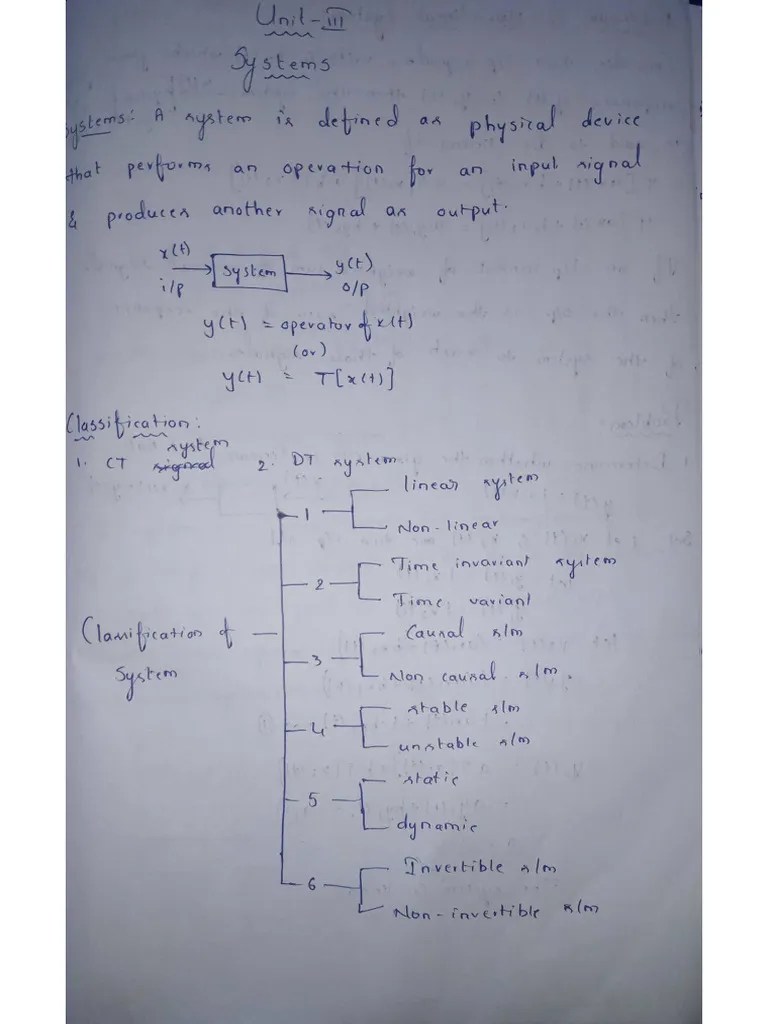 Unit-III
Systems
Systems: A system is defined as physical device
that performs an operation for an input signal
& produces another signal as output.
x(t)
i/p
System
y(t)
o/p
y(t) = operator of x(t)
(or)
y(t) = T[x(t)]
Classification:
system
1. CT signal 2. DT system
Classification of
System
1
linear system
Non-linear
2
Time invariant system
Time variant
3
Causal s/m
Non causal s/m.
4
stable s/m
unstable s/m
5
static
dynamic
6
Invertible s/m
Non-invertible s/m